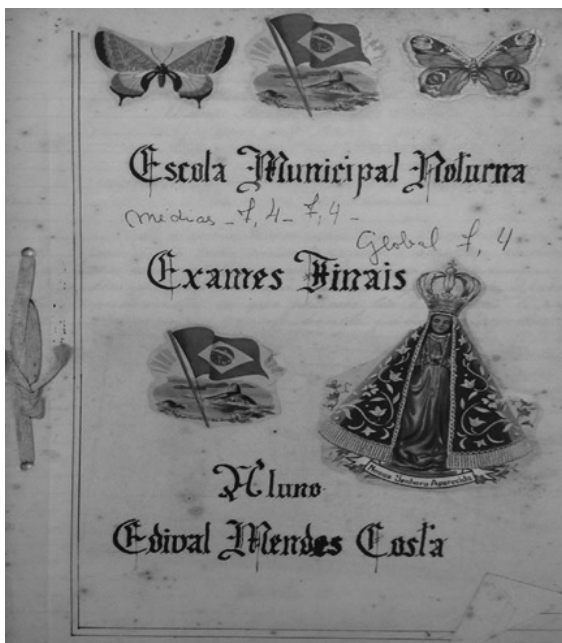 Escola Municipal Noturna
médias - 7,4 - 7,4 -
Global 7,4
Exames Finais
Nossa Senhora Aparecida
Aluno
Edival Mendes Costa